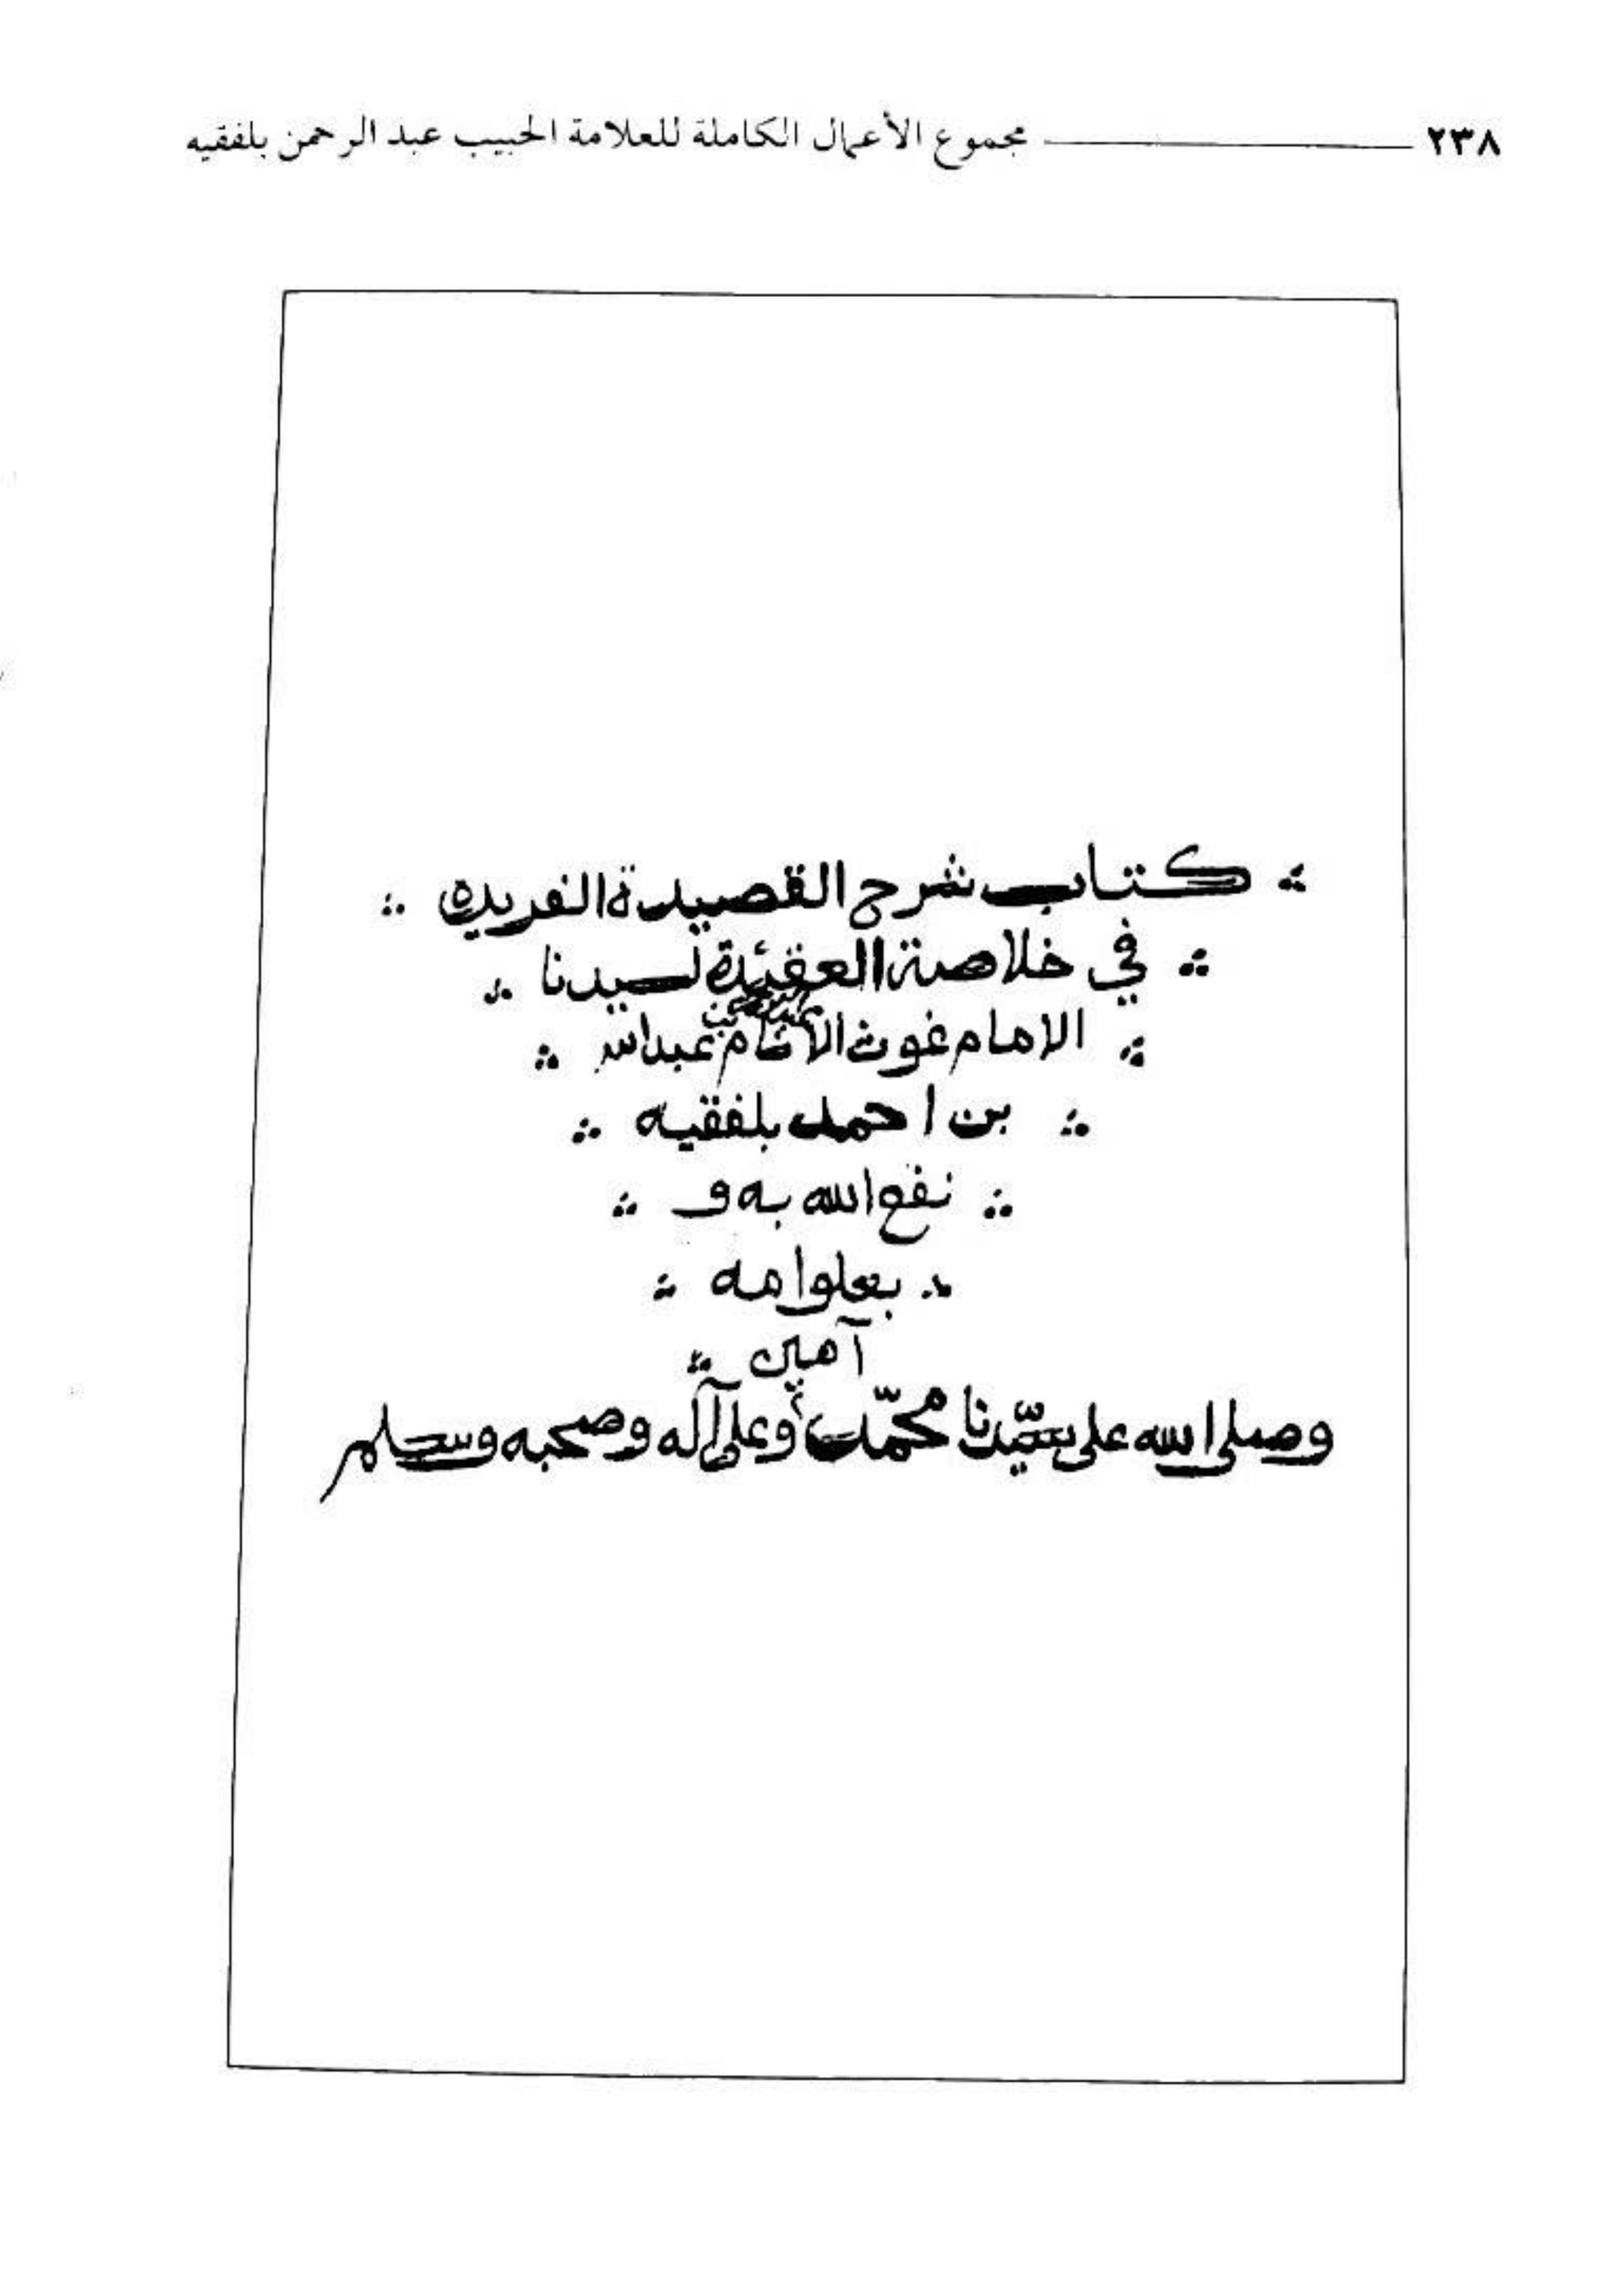 ٢٣٨ مجموع الأعمال الكاملة للعلامة الحبيب عبد الرحمن بلفقيه
كتاب شرح القصيدة الفريده
في خلاصة العقيدة لسيدنا
الامام غوث الانام عبدالله
بن احمد بلفقيه
نفع الله به و
بعلوامه
آمين
وصلى الله على سيّدنا محمّد وعلى آله وصحبه وسلم